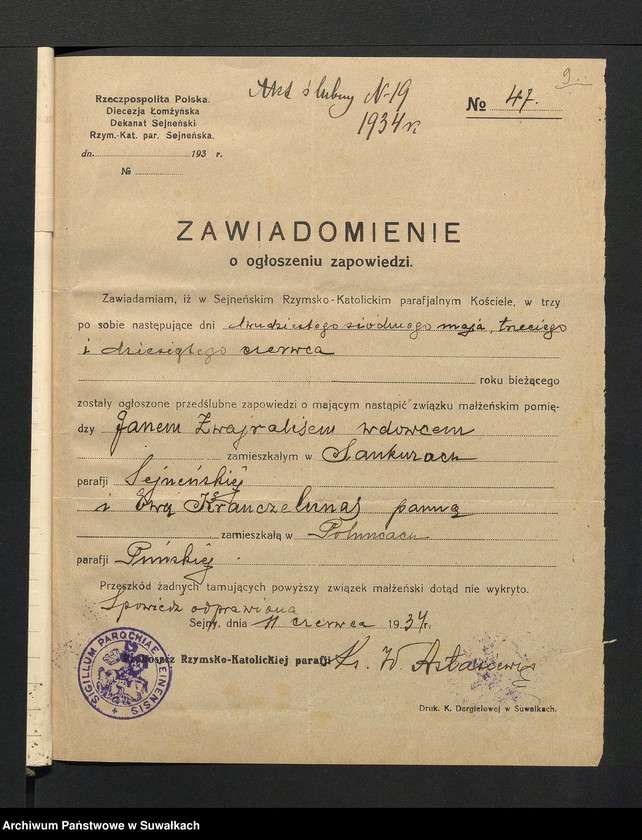 9.
Akt ślubny N-19
1934 r.
№ 47.
Rzeczpospolita Polska.
Diecezja Łomżyńska
Dekanat Sejneński
Rzym.-Kat. par. Sejneńska.
dn. 193 r.
№
ZAWIADOMIENIE
o ogłoszeniu zapowiedzi.
Zawiadamiam, iż w Sejneńskim Rzymsko-Katolickim parafjalnym Kościele, w trzy
po sobie następujące dni dwudziestego siódmego maja, trzeciego
i dziesiątego czerwca
roku bieżącego
zostały ogłoszone przedślubne zapowiedzi o mającym nastąpić związku małżeńskim pomię-
dzy Janem Zwajralisem wdowcem
zamieszkałym w Sankurach
parafji Sejneńskiej
i Ewą panną
zamieszkałą w Połuncach
parafji Puńskiej
Przeszkód żadnych tamujących powyższy związek małżeński dotąd nie wykryto.
Spowiedź odprawiona
Sejny, dnia 11 czerwca 1934 r.
Proboszcz Rzymsko-Katolickiej parafji Ks. W
SIGILLUM PAROCHIAE SEINENSIS
Druk. K. Dergielowej w Suwałkach.
Archiwum Państwowe w Suwałkach